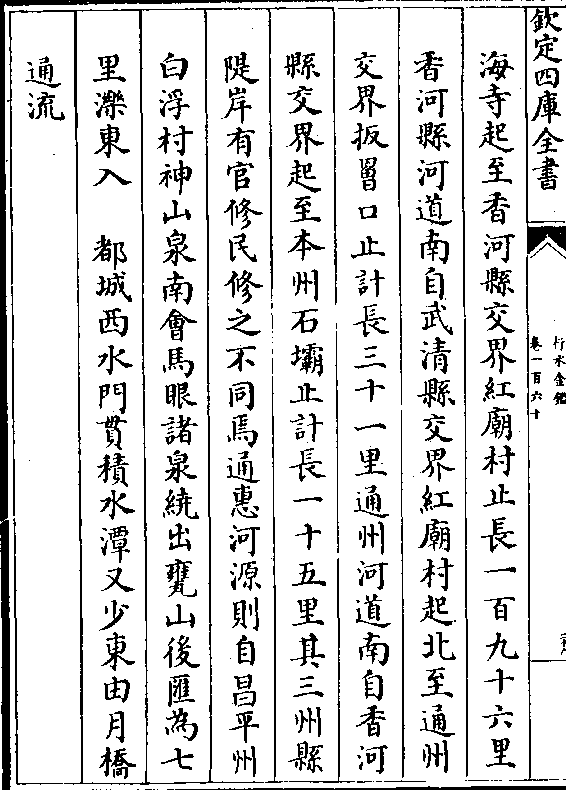 欽定四庫全書
行水金鑑
卷一百六十
海寺起至香河縣交界紅廟村止長一百九十六里
香河縣河道南自武清縣交界紅廟村起北至通州
交界扳罾口止計長三十一里通州河道南自香河
縣交界起至本州石壩止計長一十五里其三州縣
隄岸有官修民修之不同焉通惠河源則自昌平州
白浮村神山泉南會馬眼諸泉繞出甕山後匯為七
里濼東入　都城西水門貫積水潭又少東由月橋
通流